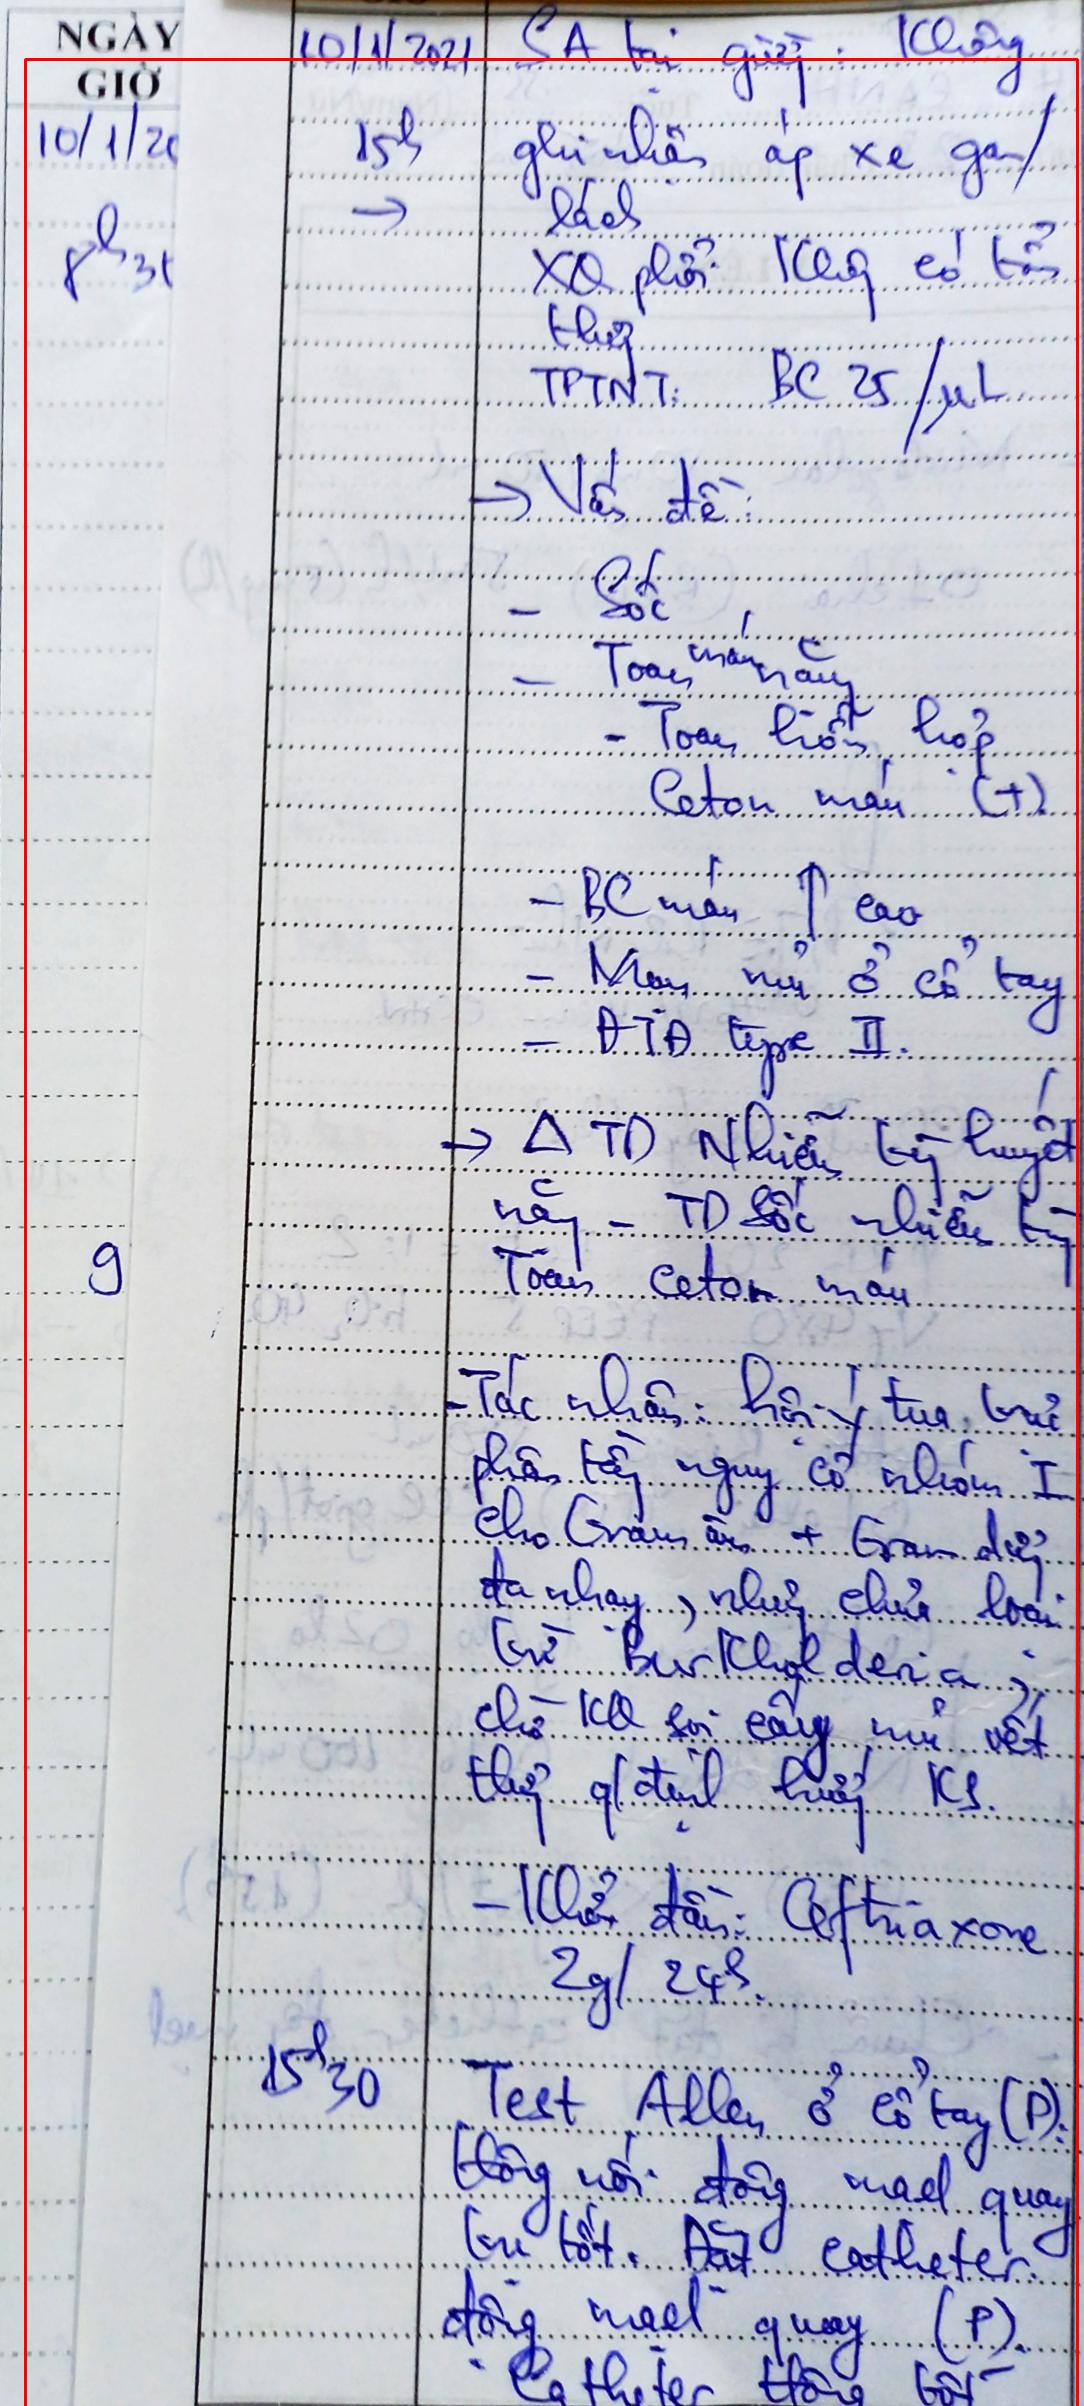 NGÀY
GIỜ
10/1/20
8h3
9
10/1/2021 SA tại giường: Không
15h ghi nhận áp xe gan/
→ lách
XQ phổi: Khg có tổn
thg
TPTNT: BC 25/μL
→ Vấn đề:
- Sốc
- Toan máu nặng
- Toan hỗn hợp
Ceton máu (+)
- BC máu ↑ cao
- Mụn mủ ở cổ tay
- ĐTĐ type II.
→ Δ TD Nhiễm trg huyết
nặng - TD sốc nhiễm trg
Toan ceton máu
- Tác nhân: hội ý tua trực
phân tầng nguy cơ nhóm I
cho Gram âm + Gram dươg
đa nhạy, nhưg chưa loại
trừ BurKholderia;
chờ KQ soi cấy mủ vết
thươg q/định hướg KS.
- Khởi đầu: Ceftriaxone
2g/24h.
15h30 Test Allen ở cổ tay (P):
thông nối động mạch quay
trụ tốt. Đặt catheter
động mạch quay (P).
Catheter thông tốt